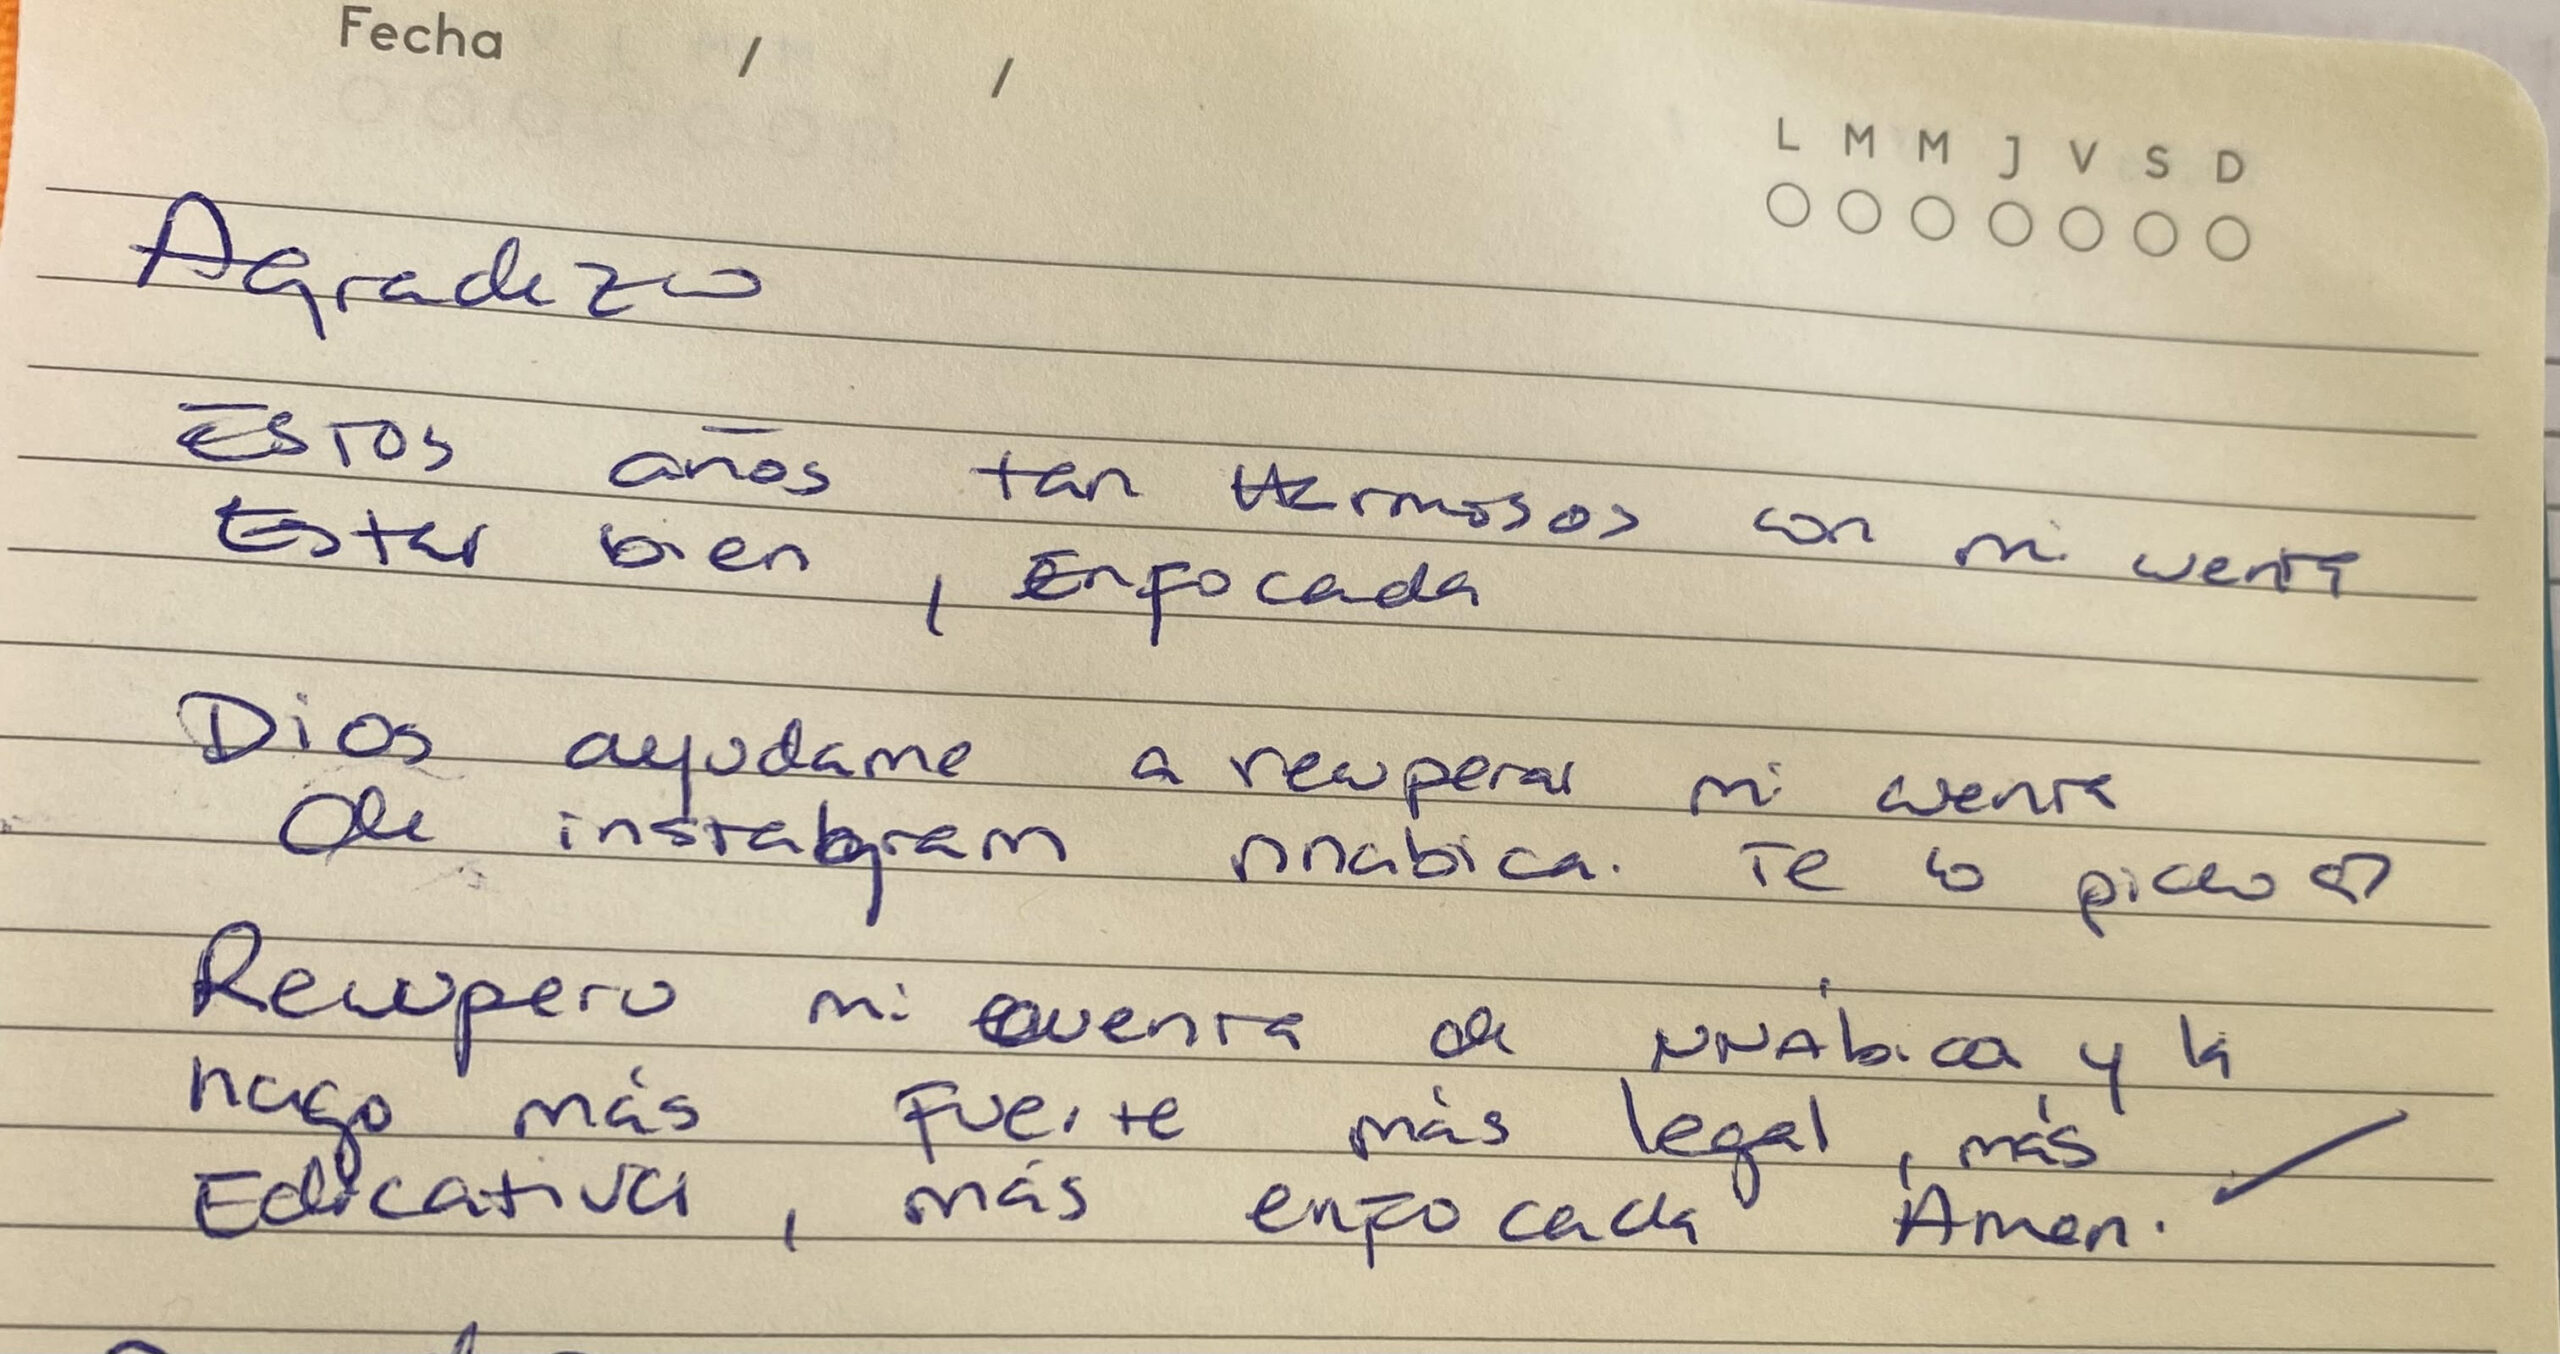 Fecha / /
L M M J V S D
Agradezco
Estos años tan Hermosos con mi cuenta
Estar bien, Enfocada
Dios ayudame a recuperar mi cuenta
de instabgram nnabica. Te lo pido ♡
Recupero mi cuenta de NNÁbica y la
hago más Fuerte más legal, más
Edicativa, más enfocada Amen.